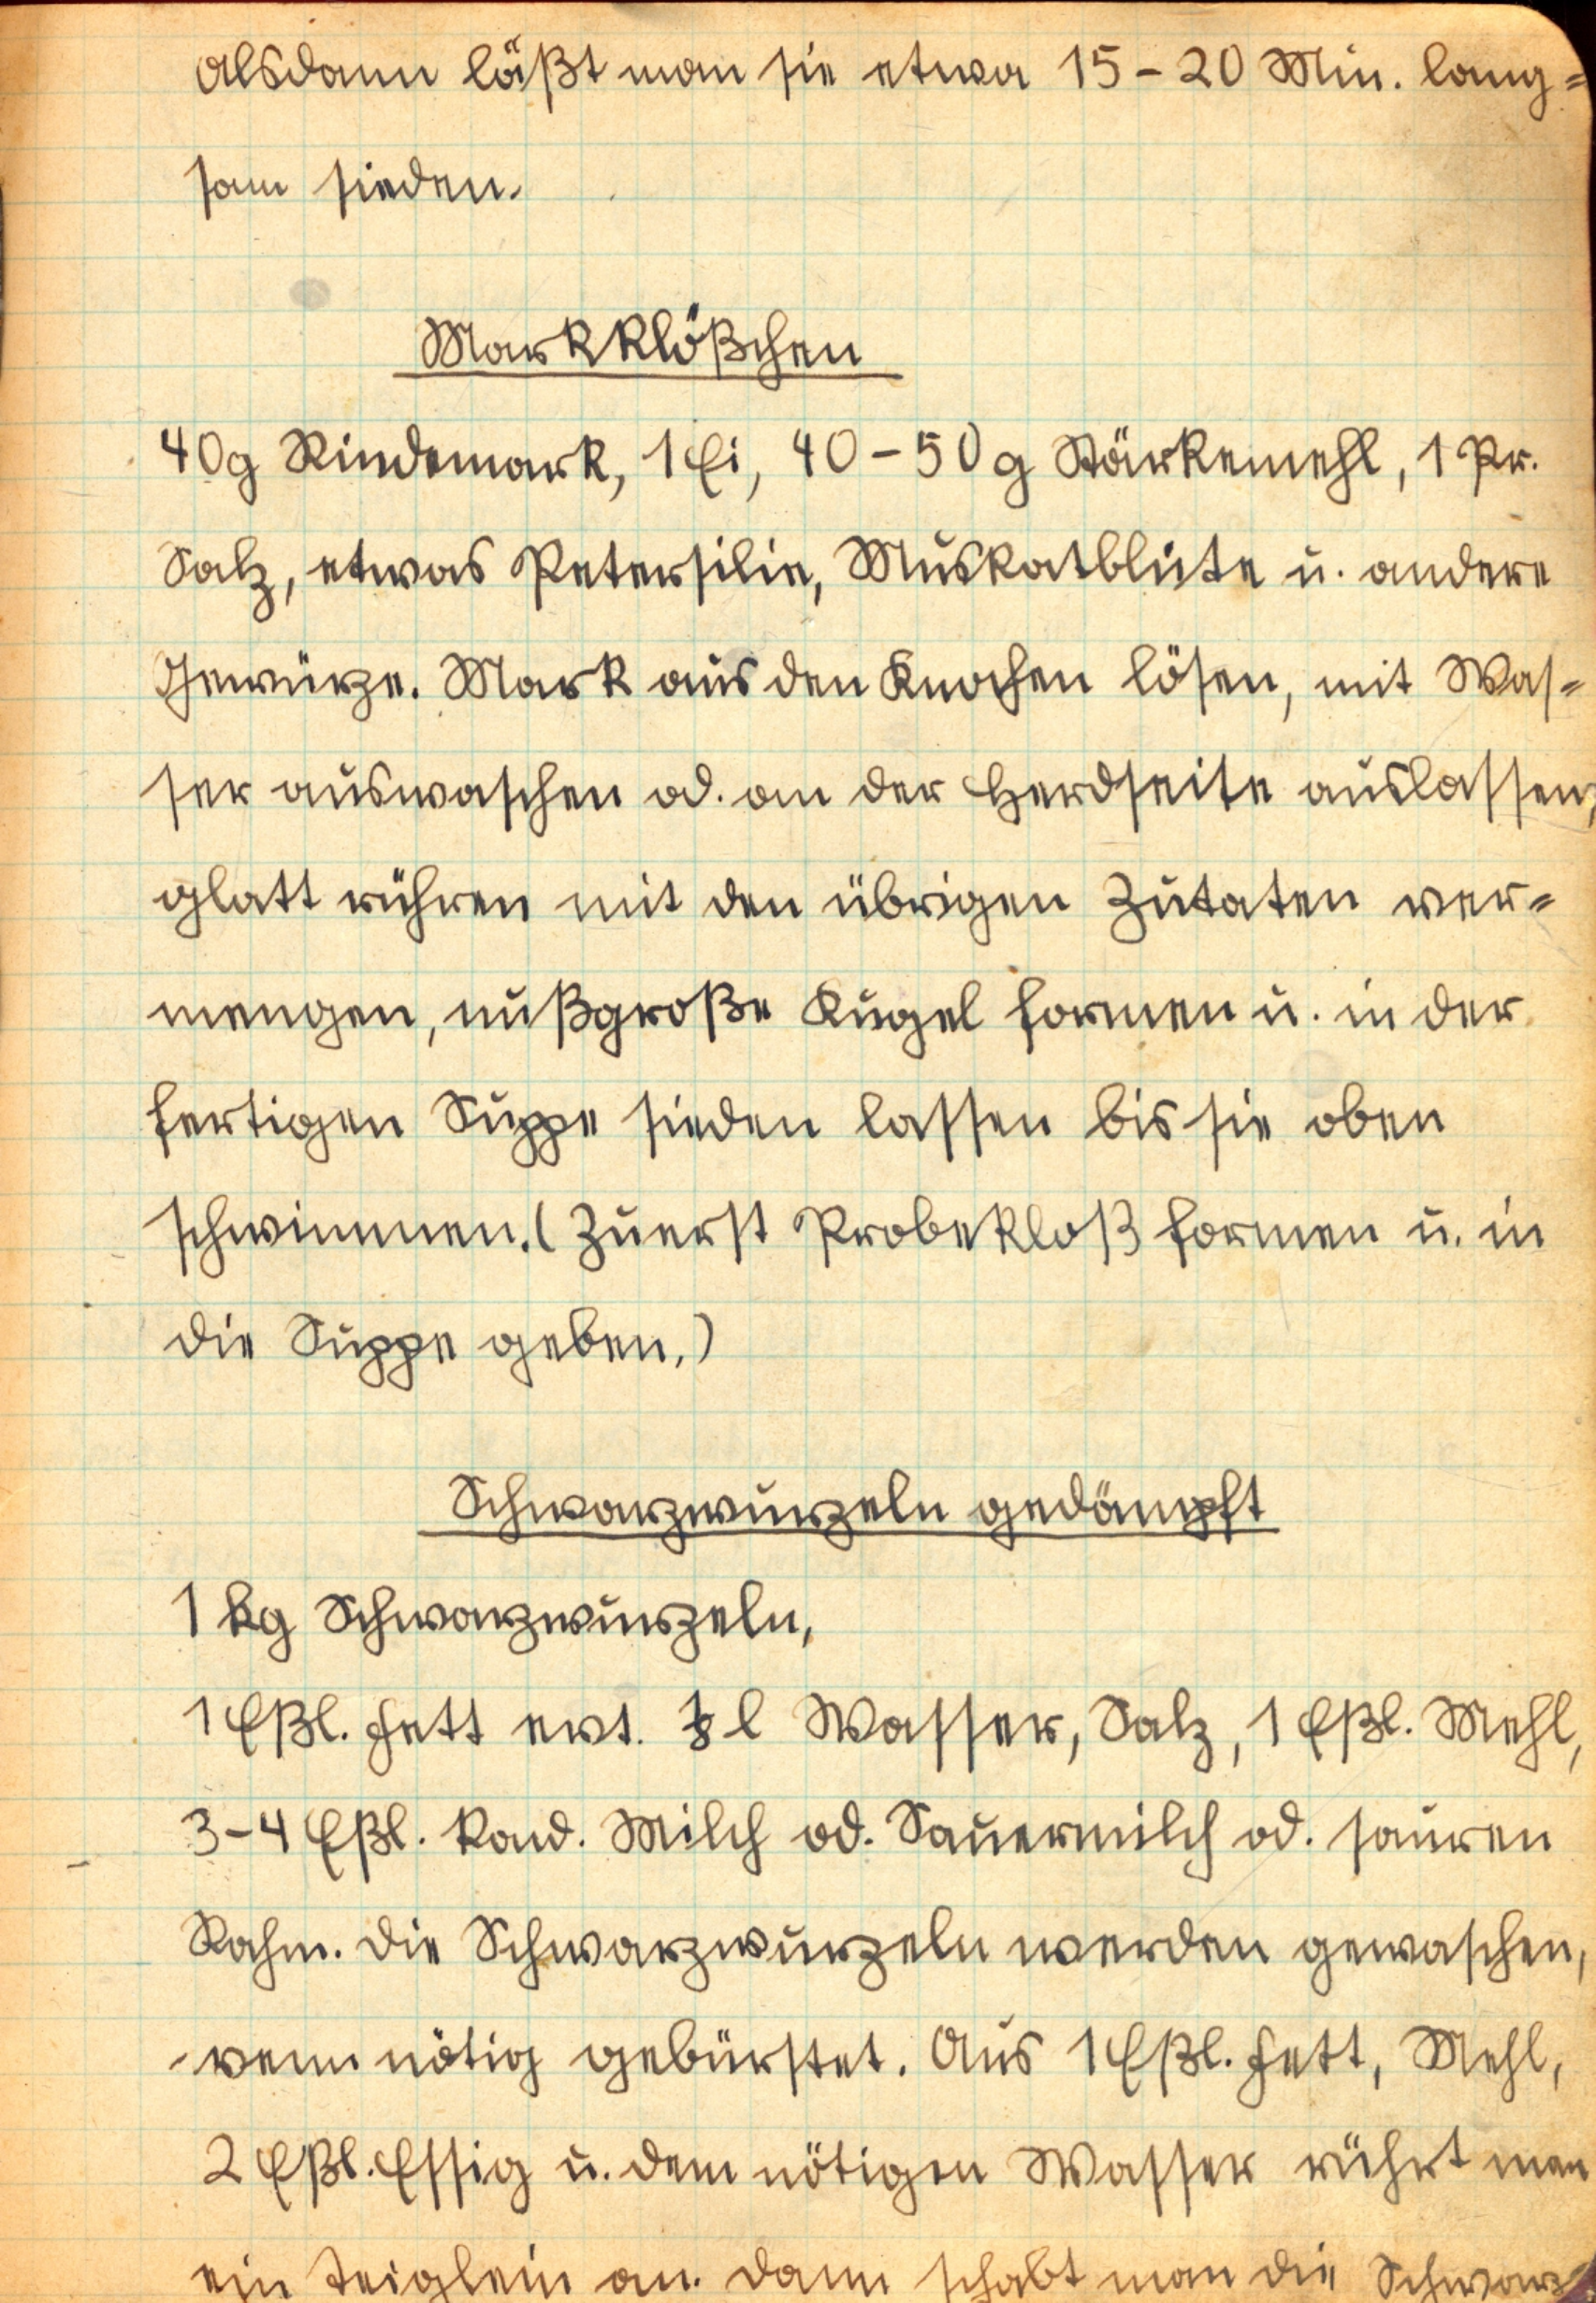 Alsdann läßt man sie etwa 15-20 Min. lang=
sam sieden.
Markklößchen
40g Rindemark, 1 Ei, 40-50g Stärkemehl, 1 Pr.
Salz, etwas Petersilie, Muskatblüte u. andere
Gewürze. Mark aus den Knochen lösen, mit Was=
ser auswaschen od. an der Herdseite auslassen,
glatt rühren mit den übrigen Zutaten ver=
mengen, nußgroße Kugel formen u. in der
fertigen Suppe sieden lassen bis sie oben
schwimmen. (Zuerst Probekloß formen u. in
die Suppe geben.)
Schwarzwurzeln gedämpft
1 kg Schwarzwurzeln,
1 Eßl. Fett evt. l Wasser, Salz, 1 Eßl. Mehl,
3-4 Eßl. kond. Milch od. Sauermilch od. sauren
Rahm. Die Schwarzwurzeln werden gewaschen,
wenn nötig gebürstet. Aus 1 Eßl. Fett, Mehl,
2 Eßl. Essig u. dem nötigen Wasser rührt man
ein Teiglein an. Dann schabt man die Schwarz